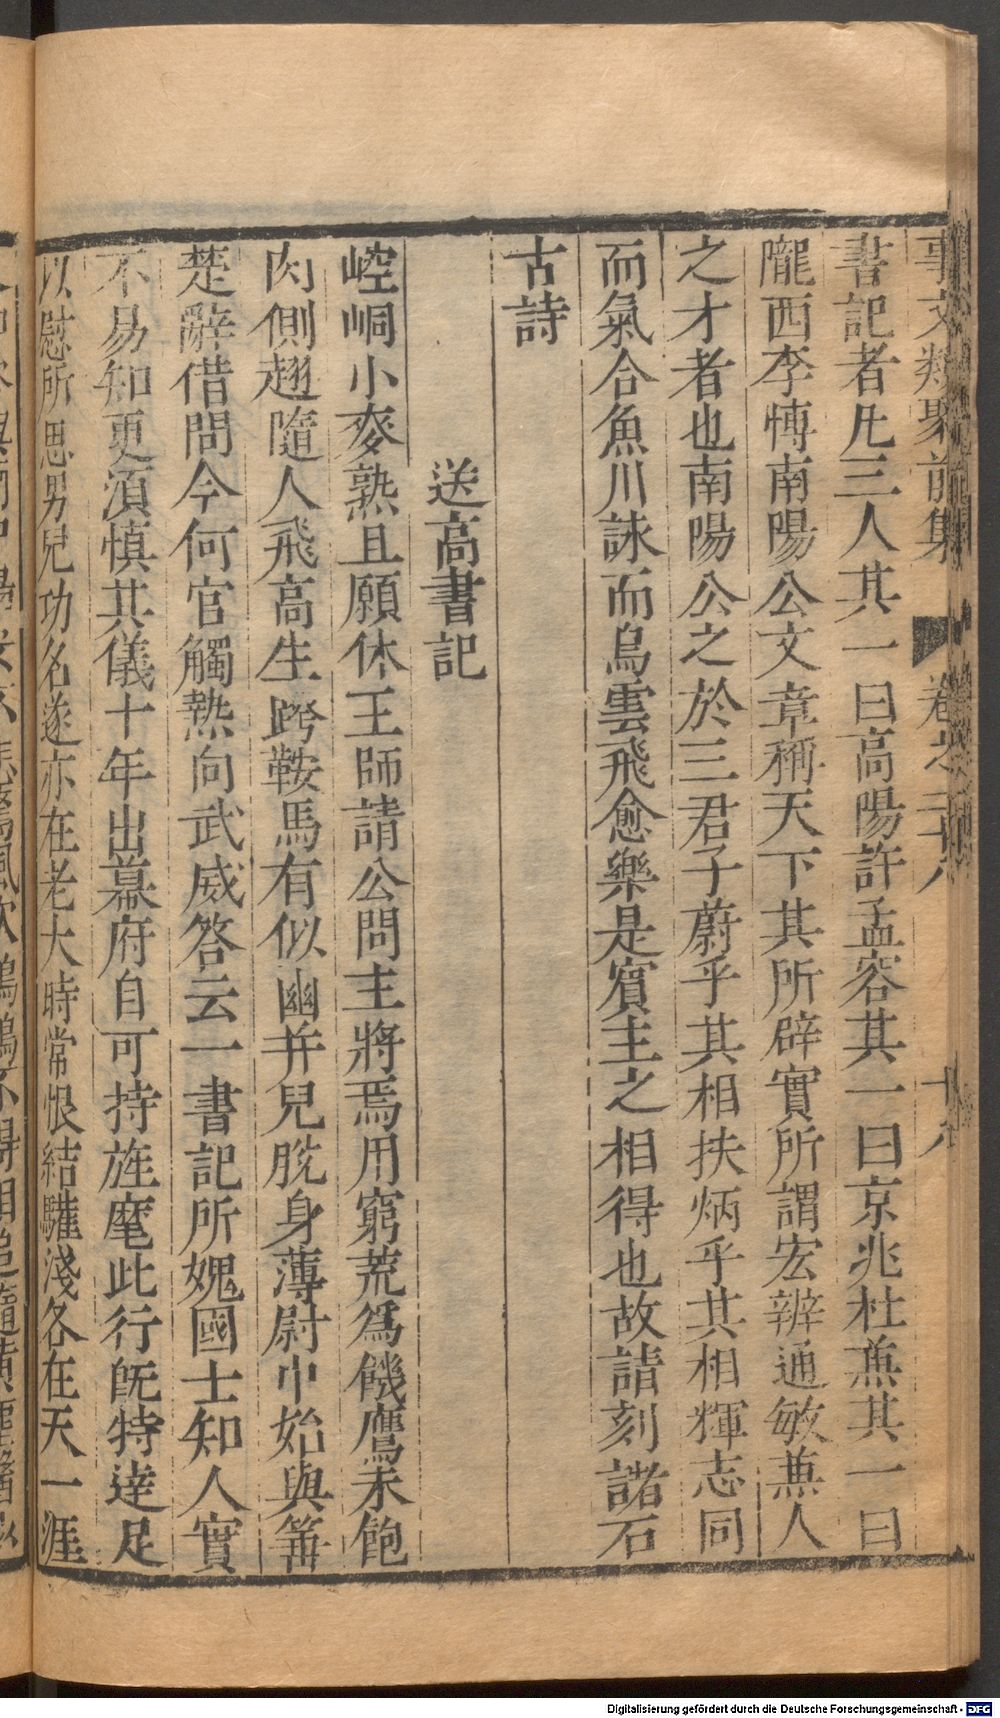 事文類聚前集 卷之二十八 十八
書記者凡三人其一曰高陽許孟容其一曰京兆杜蒹其一曰
隴西李愽南陽公文章稱天下其所辟實所謂宏辨通敏蒹人
之才者也南陽公之於三君子蔚乎其相扶炳乎其相輝志同
而氣合魚川詠而鳥雲飛愈樂是賓主之相得也故請刻諸石
古詩
送高書記
崆峒小麥熟且願休王師請公問主將焉用窮荒爲饑鷹未飽
肉側趐隨人飛高生跨鞍馬有似幽并兒脫身薄尉中始與箠
楚辭借問今何官觸熱向武威答云一書記所媿國士知人實
不易知更須慎其儀十年出幕府自可持旌麾此行旣特達足
以慰所思男兒功名遂亦在老大時常恨結驩淺各在天一涯
Digitalisierung gefördert durch die Deutsche Forschungsgemeinschaft - DFG